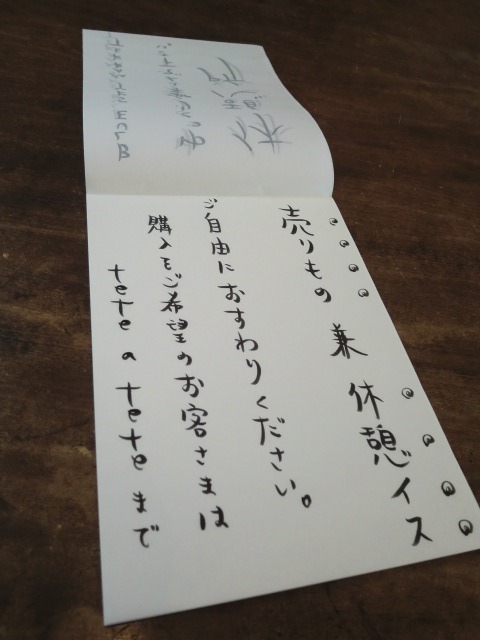 売りもの 兼 休憩イス
ご自由におすわりください。
購入をご希望のお客さまは
tete a teteまで